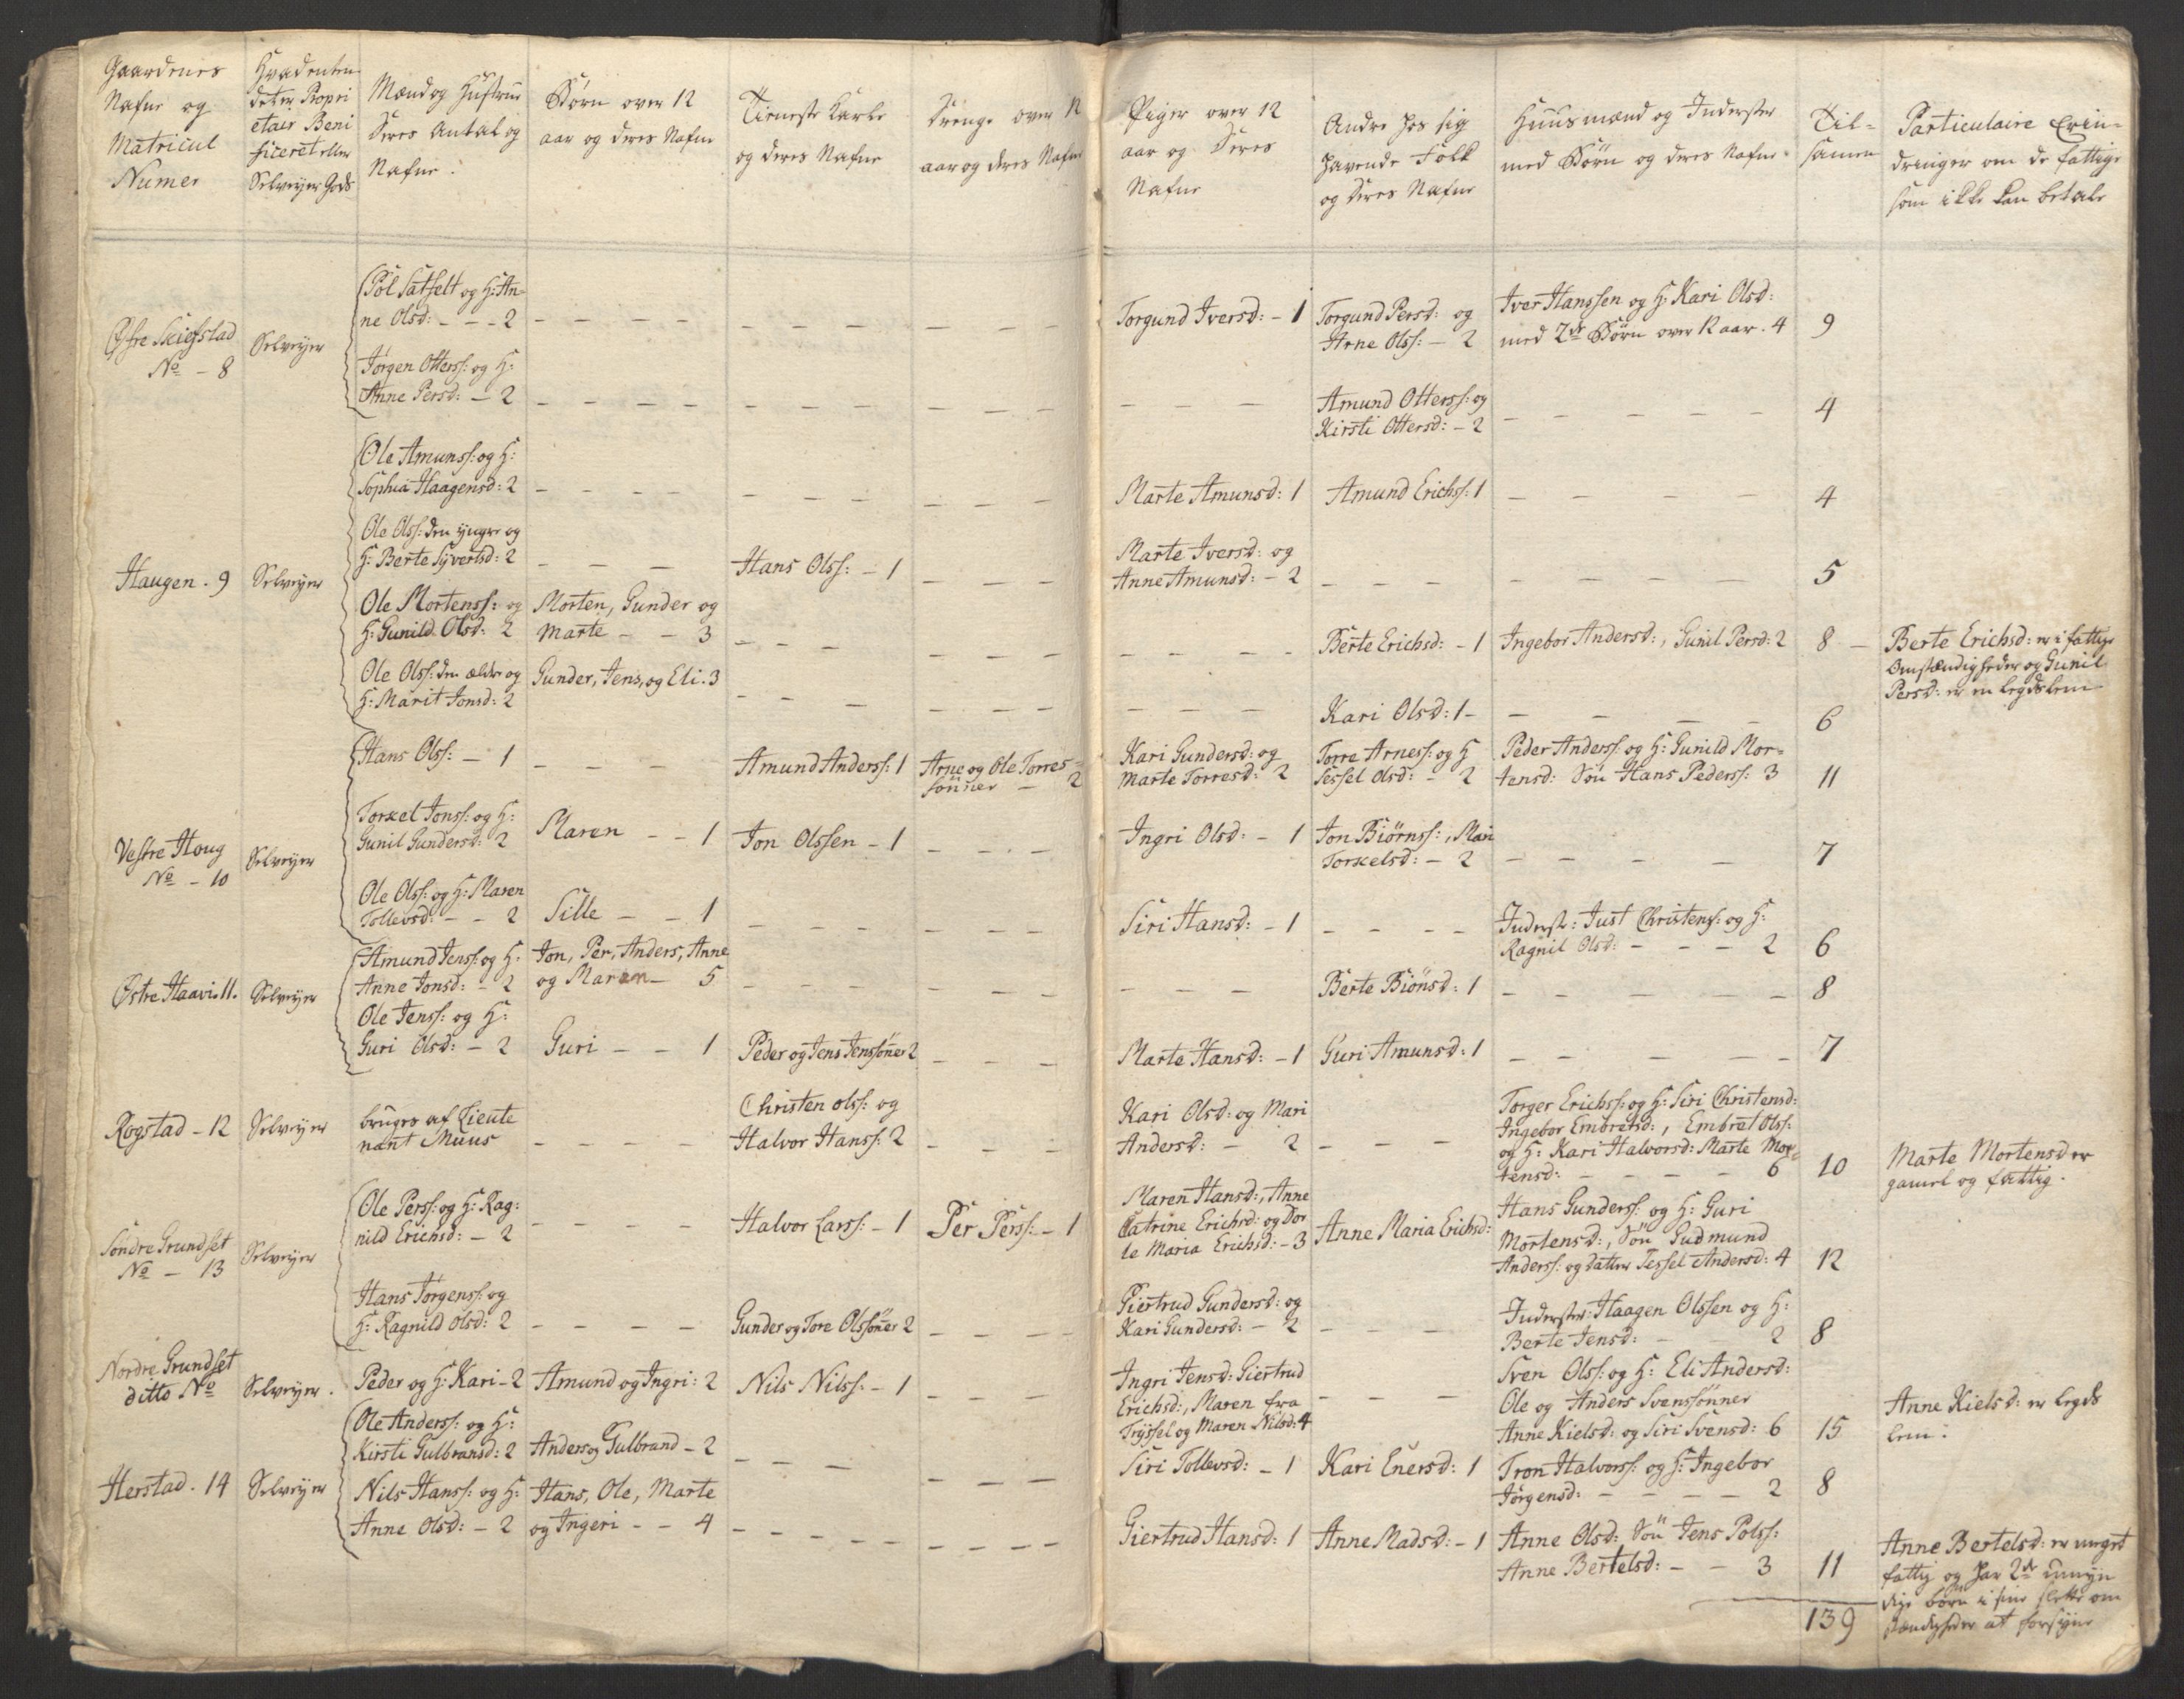 Gaardenes
Nafne og
Matricul
Numer
Hvadenten
det er Propri
etair Beni
ficeret eller
Selveyer Gods
Mænd og Hustrue
Deres Antal og
Nafne.
Børn over 12
aar og deres Nafne
Tieneste Karle
og deres Nafne
Drenge over 12
aar og deres Nafne
Piger over 12
aar og Deres
Nafne
Andre Hos sig
Havende Folk
og Deres Nafne
Huusmænd og Inderster
med Børn og deres Nafne
Til-
samen
Particulaire Erin-
dringer om de fattige
som ikke kan betale
Øfre Skiefstad
No - 8
Selveyer
Pol Satfelt og H: An-
ne Olsd: - - - 2
Torgund Iversd: - 1
Torgund Persd: og
Arne Olss: - 2
Iver Hanssen og H: Kari Olsd:
med 2de Børn over 12 aar. 4
9
Jørgen Otterss: og H:
Anne Persd: - 2
Amund Otterss: og
Kirsti Ottersd: - 2
4
Haugen. 9
Selveyer
Ole Amunss: og H:
Sophia Haagensd: 2
Marte Amunsd: 1
Amund Erichss: 1
4
Ole Olss: den yngre og
H: Berte Syvertsd: 2
Hans Olss: - 1
Marte Iversd: og
Anne Amunsd: - 2
5
Ole Mortenss: og
H: Gunild Olsd: 2
Morten, Gunder og
Marte - - 3
Berte Erichsd: - 1
Ingebor Andersd:, Gunil Persd: 2
8 -
Berte Erichsd: er i fattige
Omstændigheder og Gunil
Persd: er en legdslem
Ole Olss: den ældre og
H: Marit Jonsd: 2
Gunder, Jens, og Eli. 3
Kari Olsd: 1 -
6
Vestre Houg
No - 10
Selveyer
Hans Olss: - 1
Amund Anderss: 1
Arne og Ole Torres-
sønner - 2
Kari Gundersd: og
Marte Torresd: 2
Torre Arness: og H
Sessel Olsd: - 2
Peder Anderss: og H: Gunild Mor-
tensd: Søn Hans Pederss: 3
11
Torkel Jonss: og H:
Gunil Gundersd: 2
Maren - - 1
Jon Olssen - 1
Ingri Olsd: - 1
Jon Biørnss:, Mari
Torkelsd: - 2
7
Ole Olss: og H: Maren
Tollevsd: - - 2
Sille - - 1
Siri Hansd: - 1
Inderst: Just Christenss: og H:
Ragnil Olsd: - - - 2
6
Østre Haavi. 11.
Selveyer
Amund Jenss: og H:
Anne Jonsd: - 2
Jon, Per, Anders, Anne
og Maren - 5
Berte Biønsd: 1
8
Ole Jenss: og H:
Guri Olsd: - 2
Guri - - 1
Peder og Jens Jenssøner 2
Marte Hansd: - 1
Guri Amunsd: 1
7
Rogstad - 12
Selveyer
bruges af Lieute
nant Muus
Christen Olss: og
Halvor Hanss: 2
Kari Olsd: og Mari
Andersd: - 2
Torger Erichss: og H: Siri Christensd:
Ingebor Embretsd:, Embret Olss:
og H: Kari Halvorsd: Marte Mor-
tensd: - - - - 6
10
Marte Mortensd er
gamel og fattig.
Søndre Grundset
No - 13
Selveyer
Ole Perss: og H: Rag:
nild Erichsd: - 2
Halvor Larss: - 1
Per Perss: - 1
Maren Hansd:, Anne
Catrine Erichsd: og Dor
te Maria Erichsd: - 3
Anne Maria Erichsd:
Hans Gunderss: og H: Guri
Mortensd:, Søn Gudmund
Anderss: og datter Sessel Andersd: 4
12
Hans Jørgenss: og
H: Ragnild Olsd: 2
Gunder og Tore Olssøner 2
Giertrud Gundersd: og
Kari Gundersd: - 2
Inderster: Haagen Olssen og H:
Berte Jensd: - - 2
8
Nordre Grundset
ditto No
Selveyer.
Peder og H: Kari - 2
Amund og Ingri: 2
Nils Nilss: - 1
Ingri Jensd: Giertrud
Erichsd:, Maren fra
Tryssel og Maren Nilsd: 4
Sven Olss: og H: Eli Andersd:
Ole og Anders Svenssønner
Anne Kielsd: og Siri Svensd: 6
15
Anne Kielsd: er legds
lem:
Herstad. 14
Selveyer
Ole Anderss: og H:
Kirsti Gulbransd: 2
Anders og Gulbrand - 2
Siri Tollevsd: - 1
Kari Enersd: 1
Tron Halvorss: og H: Ingebor
Jørgensd: - - - - 2
8
Nils Hanss: og H:
Anne Olsd: - 2
Hans, Ole, Marte
og Ingeri - - 4
Giertrud Hansd: 1
Anne Madsd: - 1
Anne Olsd: Søn Jens Polss:
Anne Bertelsd: - - 3
11
Anne Bertelsd: er meget
fattig og har 2de umyn
dige børn i sine slette om
stændigheder at forsyne
139